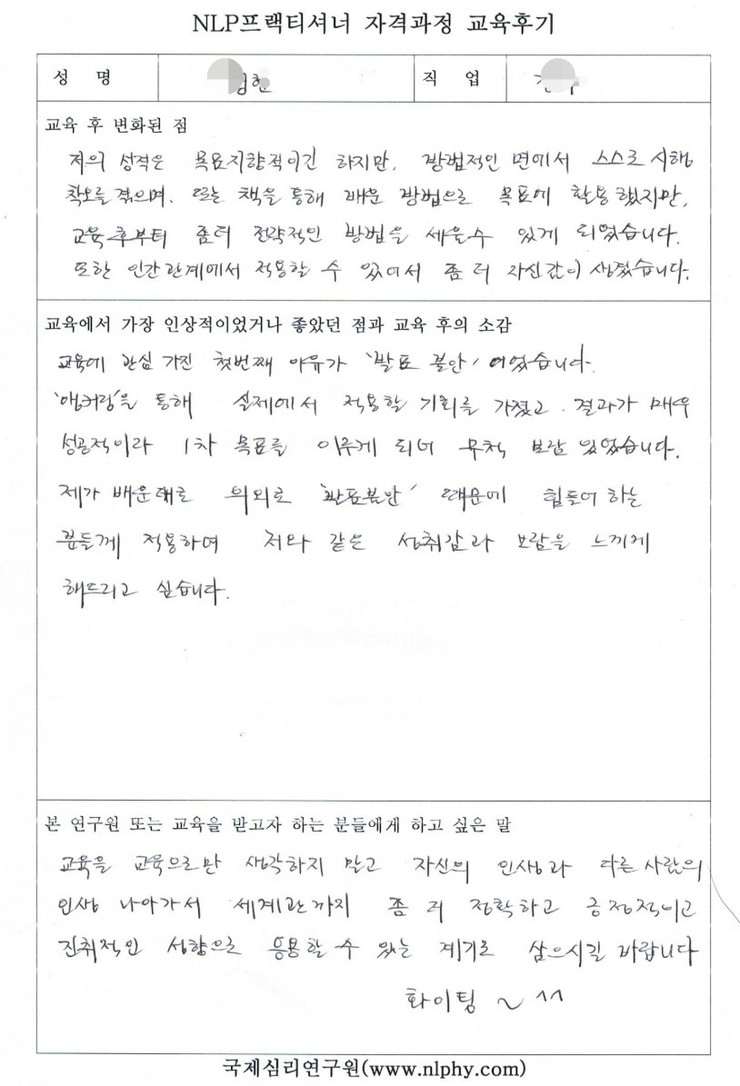 NLP프랙티셔너 자격과정 교육후기
성 명 현 직 업
교육 후 변화된 점
저의 성격은 목표지향적이긴 하지만, 방법적인 면에서 스스로 시행
착오를 겪으며, 또는 책을 통해 배운 방법으로 목표에 활용했지만,
교육후부터 좀더 전략적인 방법을 세울수 있게 되었습니다.
또한 인간관계에서 적용할 수 있어서 좀 더 자신감이 생겼습니다.
교육에서 가장 인상적이었거나 좋았던 점과 교육 후의 소감
교육에 관심 가진 첫번째 이유가 '발표 불안' 이었습니다.
'앵커링'을 통해 실제에서 적용할 기회를 가졌고. 결과가 매우
성공적이라 1차 목표를 이루게 되어 무척 보람 있었습니다.
제가 배운대로 의외로 '발표불안' 때문에 힘들어 하는
분들께 적용하여 저와 같은 성취감과 보람을 느끼게
해드리고 싶습니다.
본 연구원 또는 교육을 받고자 하는 분들에게 하고 싶은 말
교육을 교육으로만 생각하지 말고 자신의 인생과 다른 사람의
인생 나아가서 세계관까지 좀 더 정확하고 긍정적이고
진취적인 성향으로 응용할 수 있는 계기로 삼으시길 바랍니다
화이팅 ~ ^^
국제심리연구원(www.nlphy.com)